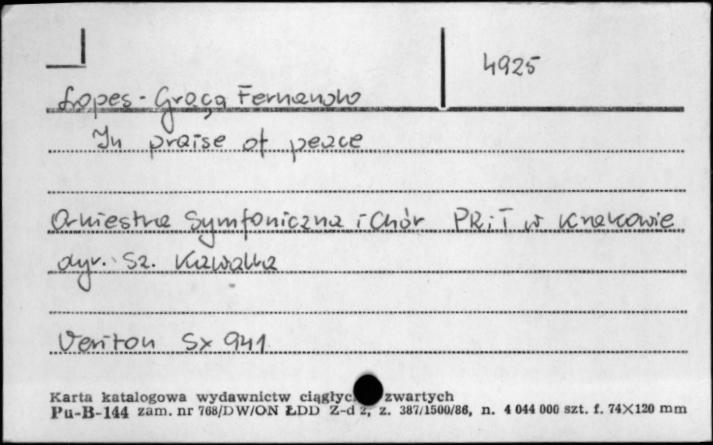 4925
Lopes-Graça Fernando
In praise of peace
Orkiestra Symfoniczna i Chór PRiT w Krakowie
dyr. Sz. Kawalla
Veriton Sx 941
Karta katalogowa wydawnictw ciągłyc zwartych
Pu-B-144 zam. nr 768/DW/ON ŁDD Z-d 2, z. 387/1500/86, n. 4 044 000 szt. f. 74×120 mm